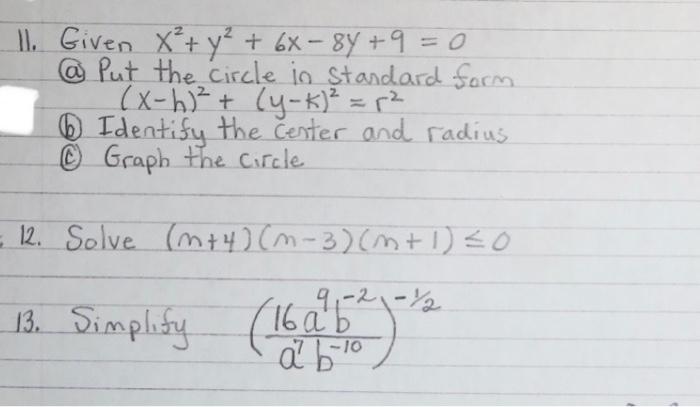 11. Given x²+ y² + 6x - 8y + 9 = 0
ⓐ Put the circle in standard form
(x-h)² + (y-k)² = r²
ⓑ Identify the center and radius
ⓒ Graph the circle
12. Solve (m+4)(m-3)(m+1) ≤ 0
13. Simplify (16a⁹b⁻² / a⁷b⁻¹⁰)^(-1/2)